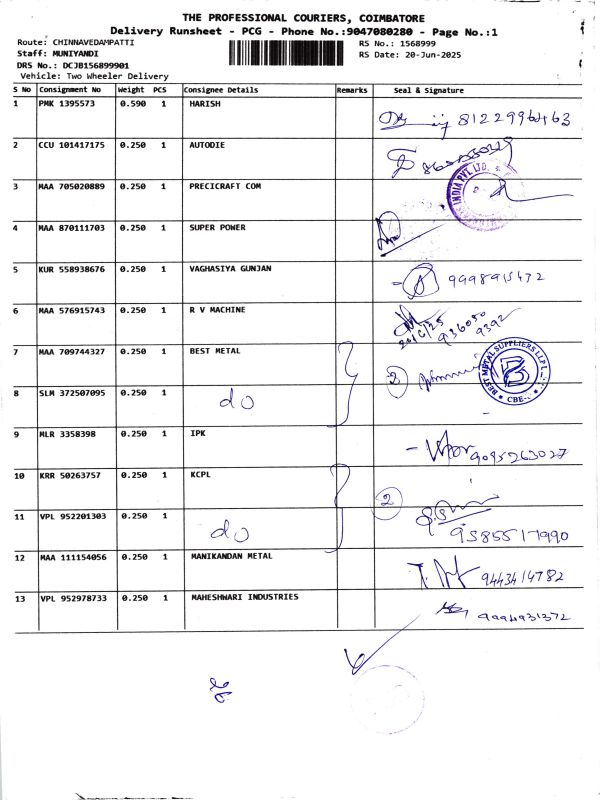 THE PROFESSIONAL COURIERS, COIMBATORE
Delivery Runsheet - PCG - Phone No.:9047080280 - Page No.:1
Route: CHINNAVEDAMPATTI
RS No.: 1568999
Staff: MUNIYANDI
RS Date: 20-Jun-2025
DRS No.: DCJB156899901
Vehicle: Two Wheeler Delivery
S No Consignment No Weight PCS Consignee Details Remarks Seal & Signature
1 PMK 1395573 0.590 1 HARISH
2 CCU 101417175 0.250 1 AUTODIE
3 MAA 705020889 0.250 1 PRECICRAFT COM
INDIA PVT. LTD.
4 MAA 870111703 0.250 1 SUPER POWER
5 KUR 558938676 0.250 1 VAGHASIYA GUNJAN 9998915472
6 MAA 576915743 0.250 1 R V MACHINE
20/6/25 936050
9392
7 MAA 709744327 0.250 1 BEST METAL
3
BEST METAL SUPPLIERS LLP
B
CBE
8 SLM 372507095 0.250 1 do
9 MLR 3358398 0.250 1 IPK 9095263027
10 KRR 50263757 0.250 1 KCPL 2
11 VPL 952201303 0.250 1 do 9585517990
12 MAA 111154056 0.250 1 MANIKANDAN METAL 9443414782
13 VPL 952978733 0.250 1 MAHESHWARI INDUSTRIES 9994931372